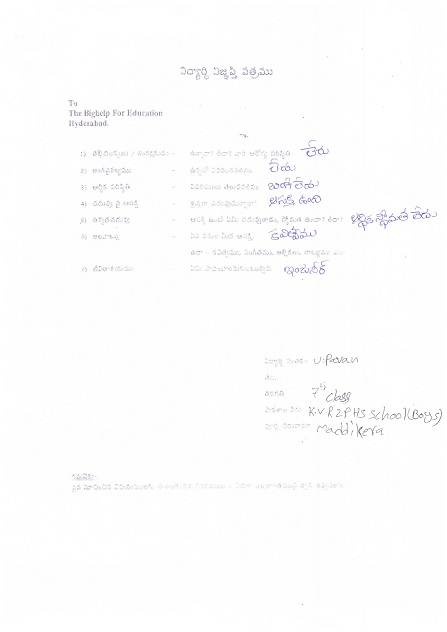 విద్యార్థి విజ్ఞప్తి పత్రము
To
The Bighelp For Education
Hyderabad.
1) తల్లిదండ్రులు / సంరక్షకుడు - ఉన్నారా? లేదా? వారి ఆరోగ్య పరిస్థితి లేరు
2) అంగవైకల్యము - ఉన్నచో వివరించవలెను లేదు
3) ఆర్థిక పరిస్థితి - వివరములు తెలుపవలెను బాగా లేదు
4) చదువు పై ఆసక్తి - శ్రద్ధగా చదువుచున్నారా? ఆసక్తి ఉంది
5) ఉన్నతచదువు - ఆసక్తి ఉంటే ఏమి చదువుతాడు, స్తోమత ఉందా? లేదా? ఆర్థిక స్తోమత లేదు
6) అలవాట్లు - ఏ ఏ పనుల మీద ఆసక్తి కవిత్వము
ఉదా - కవిత్వము, సంగీతము, ఆటలు
7) జీవితాశయము - ఏమి సాధించాలనుకుంటున్నావు ఇంజనీర్
విద్యార్థి సంతకం U. Pavan
పేరు
తరగతి 7th class
పాఠశాల పేరు K.V R Z P H S School (Boys)
పూర్తి చిరునామా Maddikera
గమనిక: